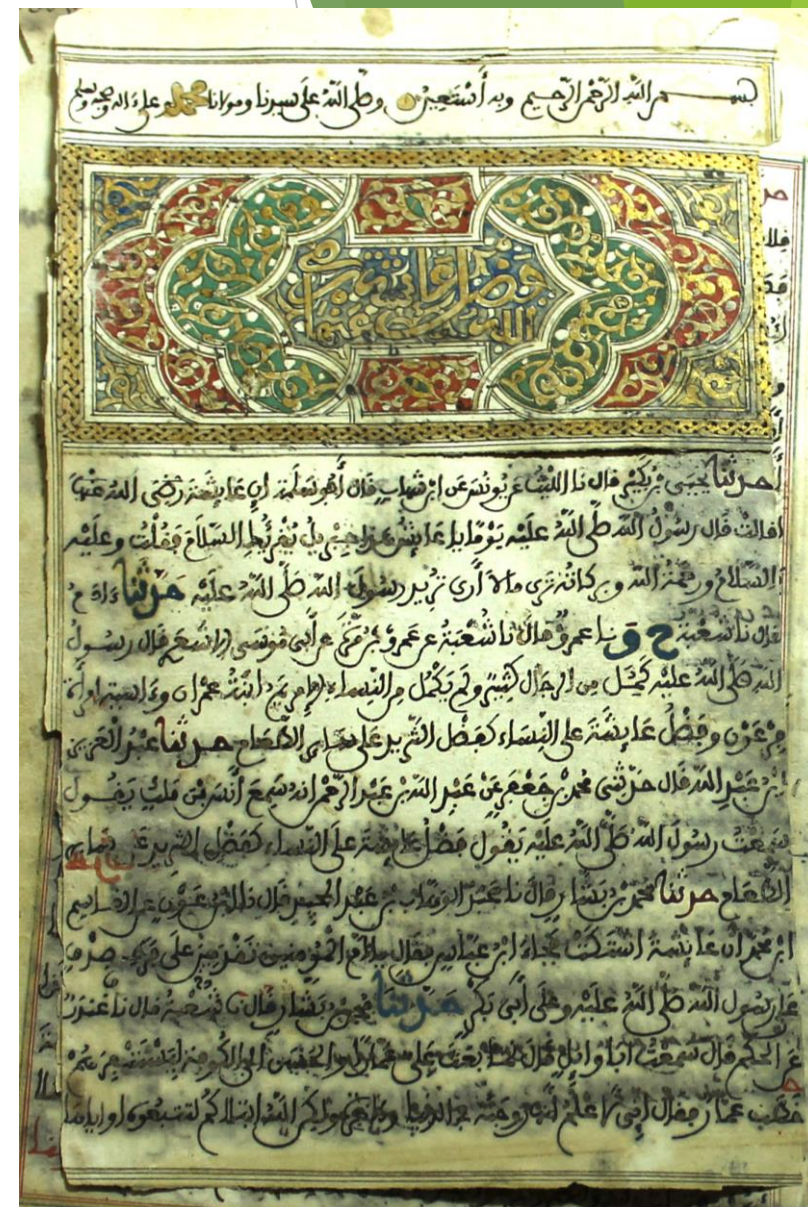 بسم الله الرحمن الرحيم وبه أستعين وصلى الله على سيدنا ومولانا محمد وعلى ءاله وصحبه وسلم
فضل عائشة رضي
الله عنها
حدثنا يحيى بن بكير قال نا الليث عن يونس عن ابن شهاب قال أبو سلمة إن عايشة رضي الله عنها
قالت قال رسول الله صلى الله عليه يوما يا عايش هذا جبريل يقرئك السلام فقلت وعليه
السلام ورحمة الله وبركاته ترى ما لا أرى تريد رسول الله صلى الله عليه حدثنا ءادم
قال نا شعبة ح و نا عمرو قال نا شعبة عن عمرو بن مرة عن أبي موسى الاشعري قال رسول
الله صلى الله عليه كمل من الرجال كثير ولم يكمل من النساء إلا مريم ابنت عمران وءاسية امرأة
فرعون وفضل عايشة على النساء كفضل الثريد على ساير الطعام حدثنا عبد العزيز
ابن عبد الله قال حدثني محمد بن جعفر عن عبد الله بن عبد الرحمن انه سمع أنس بن ملك يقول
سمعت رسول الله صلى الله عليه يقول فضل عايشة على النساء كفضل الثريد على ساير
الطعام حدثنا محمد بن بشار قال نا عبد الوهاب بن عبد المجيد قال نا ابن عون عن القاسم
ابن محمد ان عايشة اشتكت فجاء ابن عباس فقال يا أم المومنين تقدمين على فرط صدق
على رسول الله صلى الله عليه وعلى أبي بكر حدثنا محمد بن بشار قال نا غندر قال نا شعبة
عن الحكم قال سمعت أبا وايل قال لما بعث علي عمارا والحسن الى الكوفة ليستنفرهم
خطب عمار فقال إني لأعلم أنها زوجته في الدنيا والاخرة ولكن الله ابتلاكم لتتبعوه او اياها